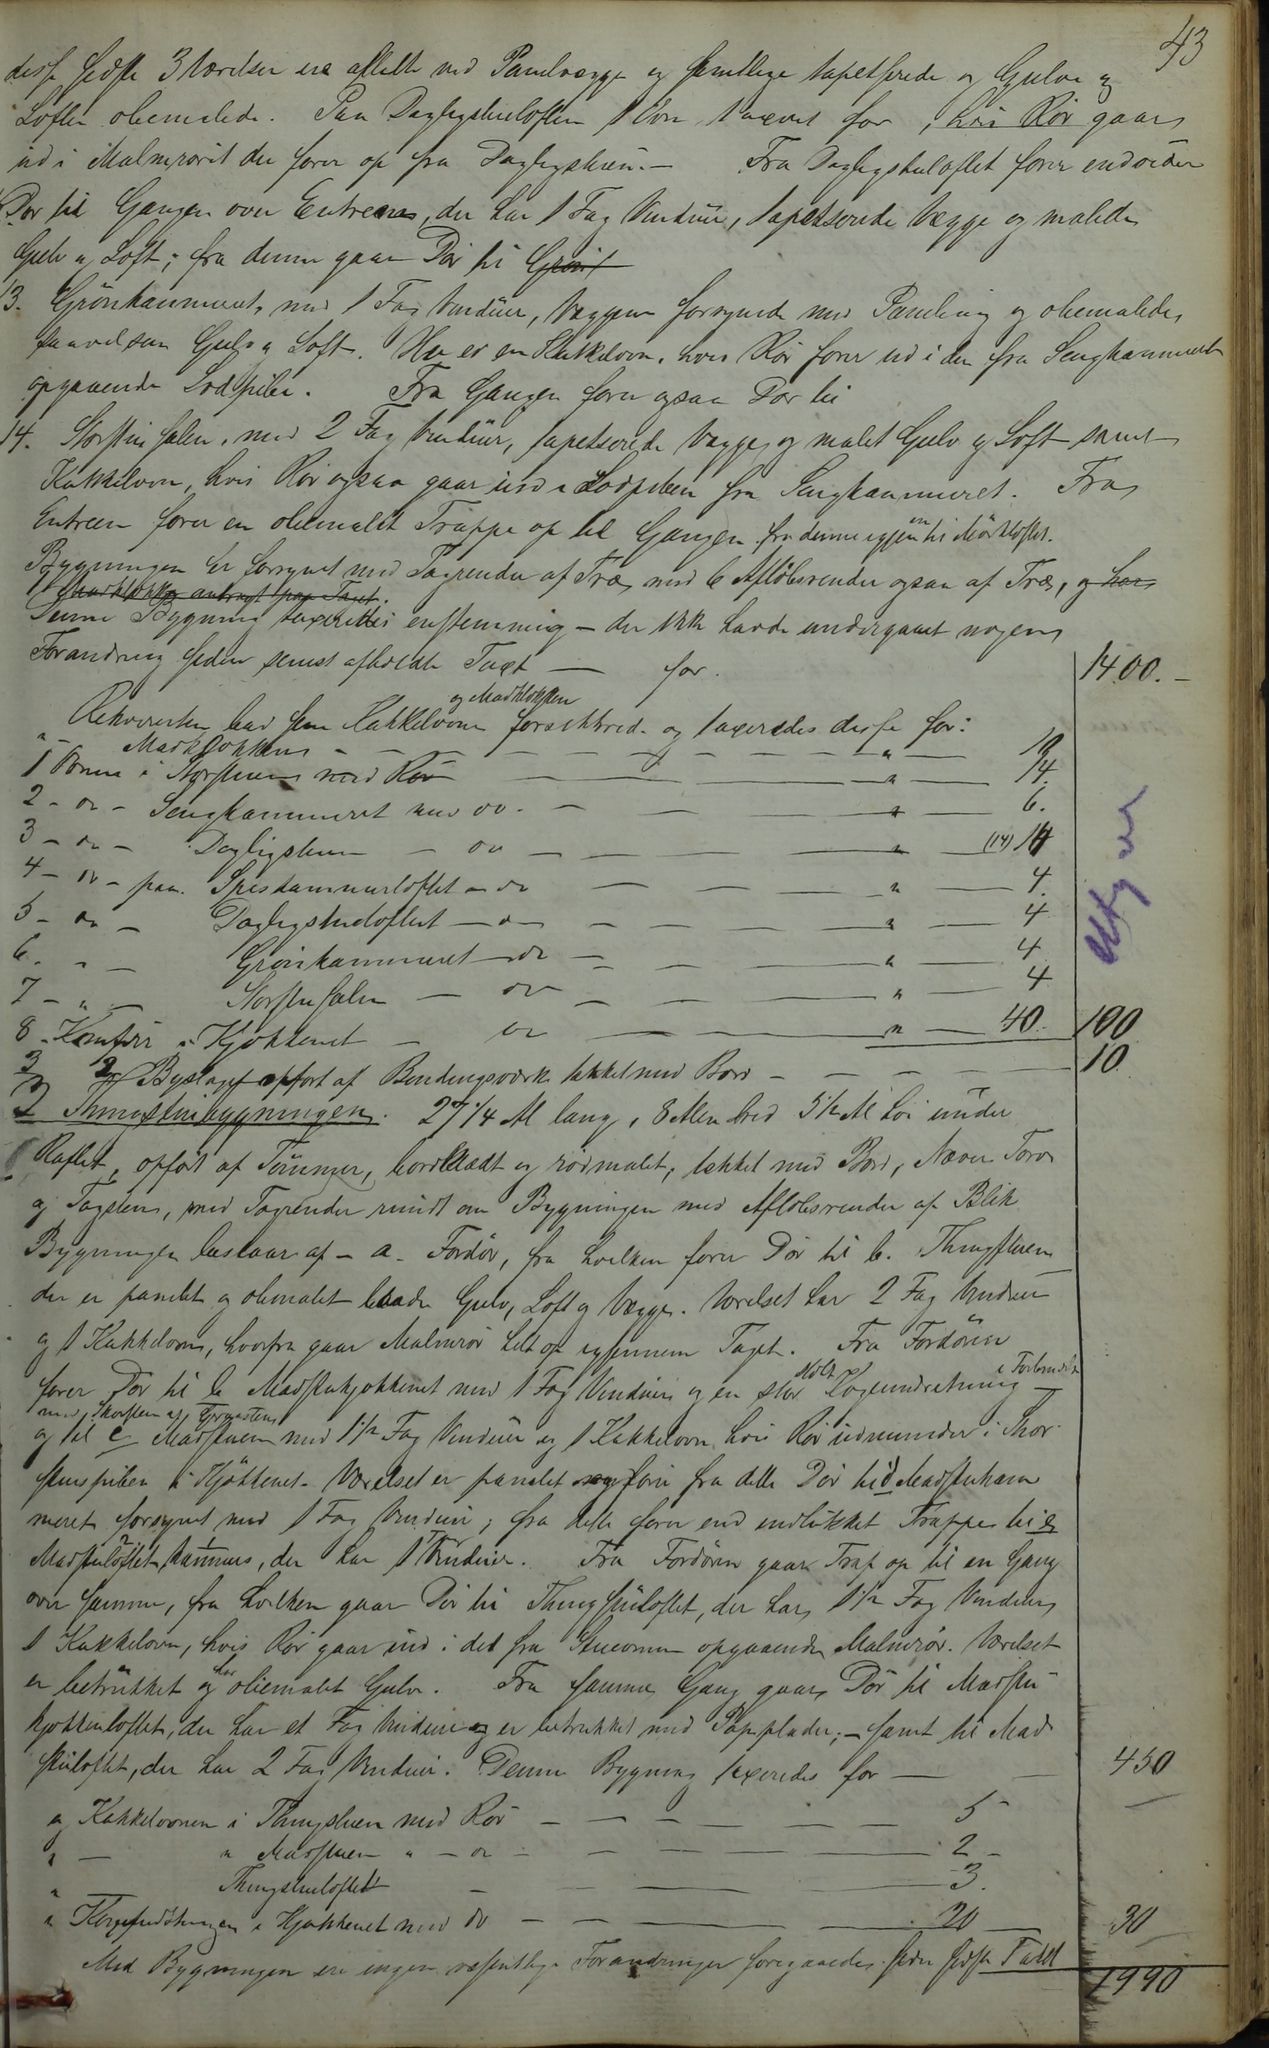 43
disse sidste 3 Værelser ere afdelte med Panelvægge og samtlige tapetserede og Gulve og
Lofter oliemalede. Paa Dagligstueloftene 1 Ovn taxeret for , hvis Rör gaar
ud i Malmröret der fører op fra Dagligstuen. — Fra Dagligstueloftet fører endvidere
Dør til Gangen over Entreen, der har 1 Fag Vinduer, tapetserede Vægge og malede
Gulv og Loft; fra denne gaar Dör til Grönt
13. Grönkammeret, med 1 Fag Vinduer, Væggene forsynede med Paneling og oliemalede,
saavelsom Gulv og Loft. Her er en Kakkelovn, hvis Rör fører ud i den fra Sengkammeret
opgaaende Lodpibe. Fra Gangen fører ogsaa Dør til
14. Storstue salen, med 2 Fag Vinduer, tapetserede Vægge, og malet Gulv og Loft samt
Kakkelovn, hvis Rör ogsaa gaar ind i Lodpiben fra Sengkammeret. Fra
Entreen fører en oliemalet Trappe op til Gangen, fra denne igjen en til Mörkloftet.
Bygningen er forsynet med Tagrender af Træ, med 6 Aflöbsrender ogsaa af Træ, og har
1 Madklokke anbragt paa Taget.
Denne Bygning taxeredes enstemmig — der ikke havde undergaaet nogen
Forandring siden senest afholdte Taxt — for. 1400. —
og Madklokken
Rekvirenten bad sine Kakkelovne forsikkred og taxeredes disse for:
" Madklokken — — — " — 10
1 Ovnen i Storstuen med Rör — — " — 14.
2 - do - Sengkammeret med do. — — " — 6.
3 - do - Dagligstuen — do — — " — (14) 14
4 - do - paa Spiskammerloftet - do — — " — 4.
5 - do - Dagligstueloftet — do — — " — 4
6. " - Grönkammeret — do — — " — 4
7 - " - Storstusalen — do — — " — 4
8 - Komfür i Kjökkenet — do — — " — 40. 100
2 Byslaget opført af Bindingsværk tækket med Bord — — — — 10
2 Thingstubygningen. 27 1/4 Al lang, 8 Alen bred 5 1/2 Al höi under
Raftet, opført af Tömmer, bordklædt og rödmalet, tækket med Bord, Næver Torv
og Tagsten, med Tagrender rundt om Bygningen med Aflöbsrender af Blik
Bygningen bestaar af — a. Fordör, fra hvilken fører Dör til b. Thingstuen
der er panelet og oliemalet baade Gulv, Loft og Vægge. Værelset har 2 Fag Vinduer
og 1 Kakkelovn, hvorfra gaar Malmrör helt op igjennem Taget. Fra Fordören
fører Dör til b Madstukjøkkenet med 1 Fag Vinduer og en stor Kogeindretning i Forbindelse
med Skorsten af
og til c Madstuen med 1 1/2 Fag Vinduer og 1 Kakkelovn, hvis Rör udmunder i Skor
stenspiben i Kjökkenet. Værelset er panelet og fører fra dette Dör til d Madstukam
meret forsynet med 1 Fag Vinduer; fra dette fører end indlukket Trappe til e
Madstuloftet kammers, der har 1 Vinduer. Fra Fordören gaar Trap op til en Gang
over samme, fra hvilken gaar Dör til Thingstuloftet, der har 1 1/2 Fag Vinduer,
1 Kakkelovn, hvis Rör gaar ind i det fra Stueovnen opgaaende Malmrör. Værelset
er betrukket og har oliemalet Gulv. Fra samme Gang gaar Dör til Madstu
kjökkenloftet, der har et Fag Vinduer og er betrukket med Papplader; — samt til Mad
stuloftet, der har 2 Fag Vinduer. Denne Bygning taxeredes for — — 450
og Kakkelovnen i Thingstuen med Rör — — — 5
" — " Madstuen " — do — — — 2 —
" Thingstueloftet — — — 3.
" Kogeindretningen i Kjøkkenet med do — — — 20 30
Med Bygningen ere ingen væsentlige Forandringer foregaaede siden sidste Taxt
1990